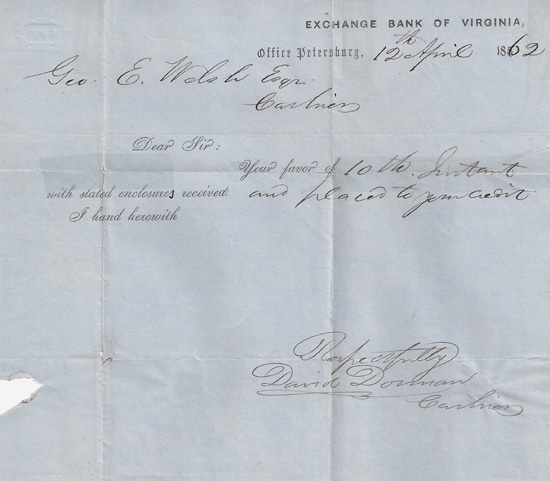 EXCHANGE BANK OF VIRGINIA,
Office Petersburg, 12th April 1862
Geo. E. Welsh Esqr.
Cashier
Dear Sir:
Your favor of 10th. Instant
with stated enclosures received. and placed to your credit
I hand herewith
Respectfully
David Dorman
Cashier